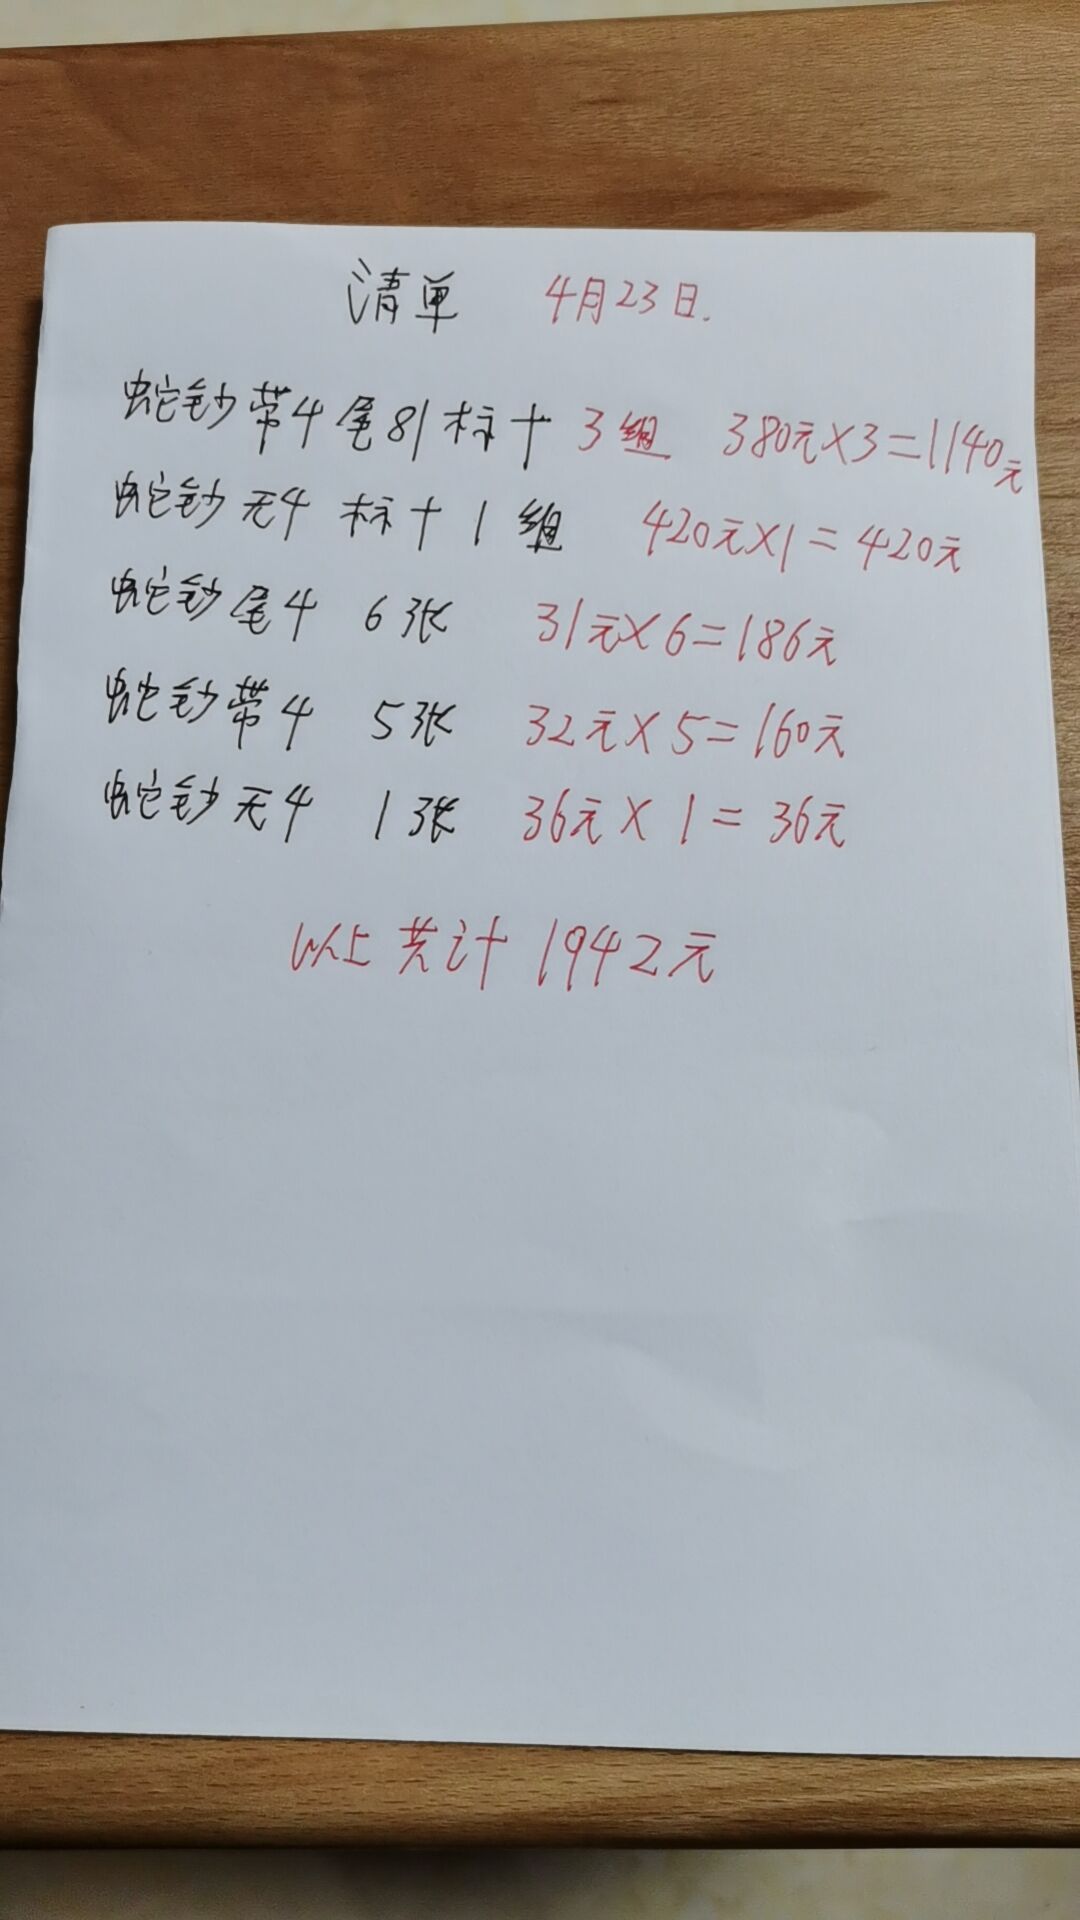 清单 4月23日.
蛇钞带4尾81标十 3组 380元×3=1140元
蛇钞无4 标十 1组 420元×1=420元
蛇钞尾4 6张 31元×6=186元
蛇钞带4 5张 32元×5=160元
蛇钞无4 1张 36元×1=36元
以上共计 1942元